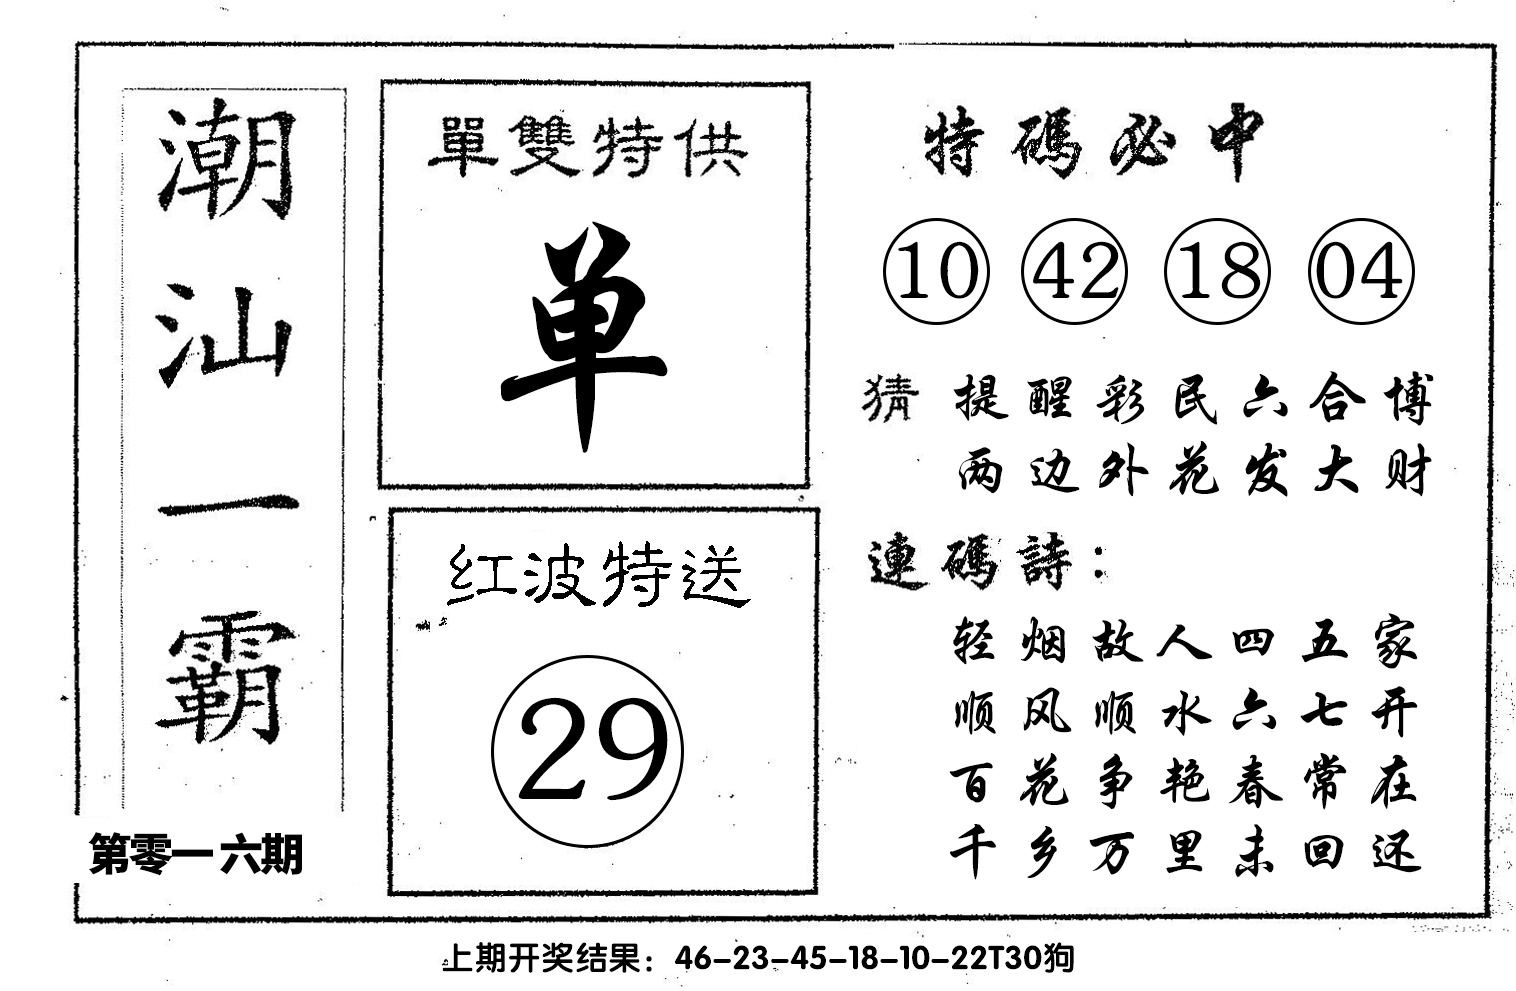 潮汕一霸
第零一六期
單雙特供
单
红波特送
29
特碼必中
10 42 18 04
猜 提醒彩民六合博
两边外花发大财
連碼詩：
轻烟故人四五家
顺风顺水六七开
百花争艳春常在
千乡万里未回还
上期开奖结果：46-23-45-18-10-22T30狗